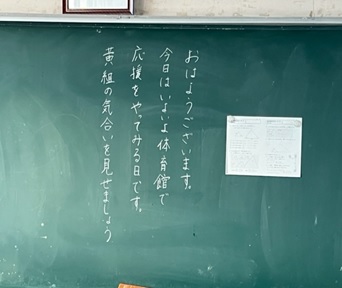 おはようございます。
今日はいよいよ体育館で
応援をやってみる日です。
黄組の気合いを見せましょう